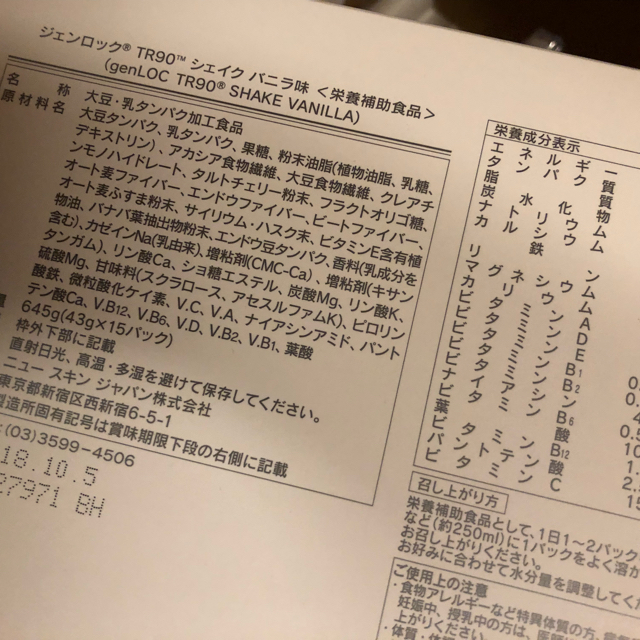 ジェンロック® TR90™ シェイク バニラ味 <栄養補助食品>
(genLOC TR90® SHAKE VANILLA)
名 称 大豆・乳タンパク加工食品
原材料名 大豆タンパク、乳タンパク、果糖、粉末油脂(植物油脂、乳糖、
デキストリン)、アカシア食物繊維、大豆食物繊維、クレアチ
ンモノハイドレート、タルトチェリー粉末、フラクトオリゴ糖、
オート麦ファイバー、エンドウファイバー、ビートファイバー、
オート麦ふすま粉末、サイリウム・ハスク末、ビタミンE含有植
物油、バナバ葉抽出物粉末、エンドウ豆タンパク、香料(乳成分を
含む)、カゼインNa(乳由来)、増粘剤(CMC-Ca)、増粘剤(キサン
タンガム)、リン酸Ca、ショ糖エステル、炭酸Mg、リン酸K、
硫酸Mg、甘味料(スクラロース、アセスルファムK)、ピロリン
酸鉄、微粒酸化ケイ素、V.C、V.A、ナイアシンアミド、パント
テン酸Ca、V.B12、V.B6、V.D、V.B2、V.B1、葉酸
量 645g(43g×15パック)
枠外下部に記載
直射日光、高温・多湿を避けて保存してください。
ニュー スキン ジャパン株式会社
東京都新宿区西新宿6-5-1
製造所固有記号は賞味期限下段の右側に記載
:(03)3599-4506
18.10.5
27971 BH
栄養成分表示
エネルギー
タンパク質
脂質
炭水化物
ナトリウム
カリウム
鉄
マグネシウム
ビタミンA
ビタミンD
ビタミンE
ビタミンB1
ビタミンB2
ナイアシン
ビタミンB6
葉酸
ビタミンB12
パントテン酸
ビタミンC
召し上がり方
栄養補助食品として、1日1〜2パック
など(約250ml)に1パックをよく溶か
お召し上がりください。
お好みに合わせて水分量を調整してくだ
ご使用上の注意
・食物アレルギーなど特異体質の方、
妊娠中、授乳中の方は、
上がりください。
・体質・体調